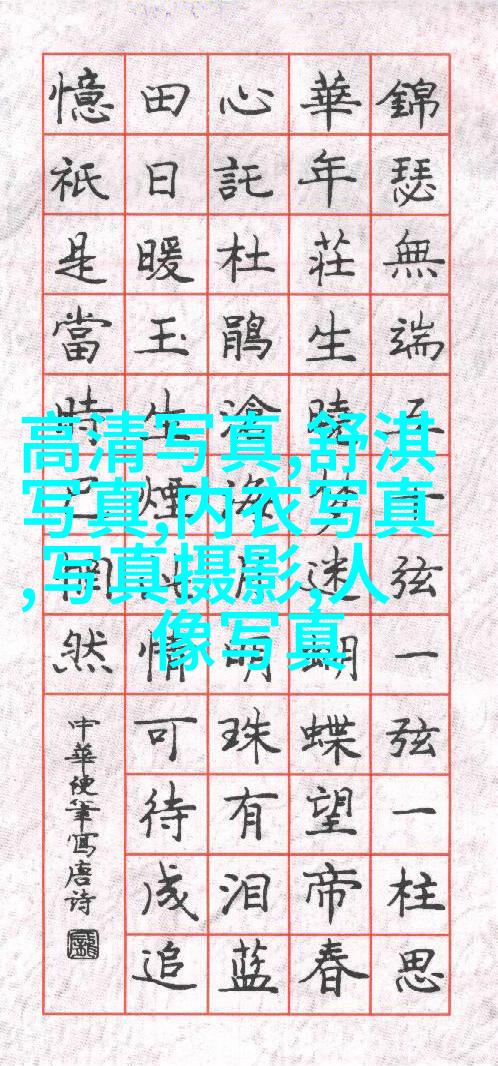 錦瑟無端五十弦一弦一柱思
華年莊生曉夢迷蝴蝶望帝春
心託杜鵑滄海月明珠有泪蓝
田日暖玉生煙此情可待成追
憶祇是當時已惘然
中華便筆寫唐诗
高清写真,舒淇
写真,内衣写真
,写真摄影,人
像写真